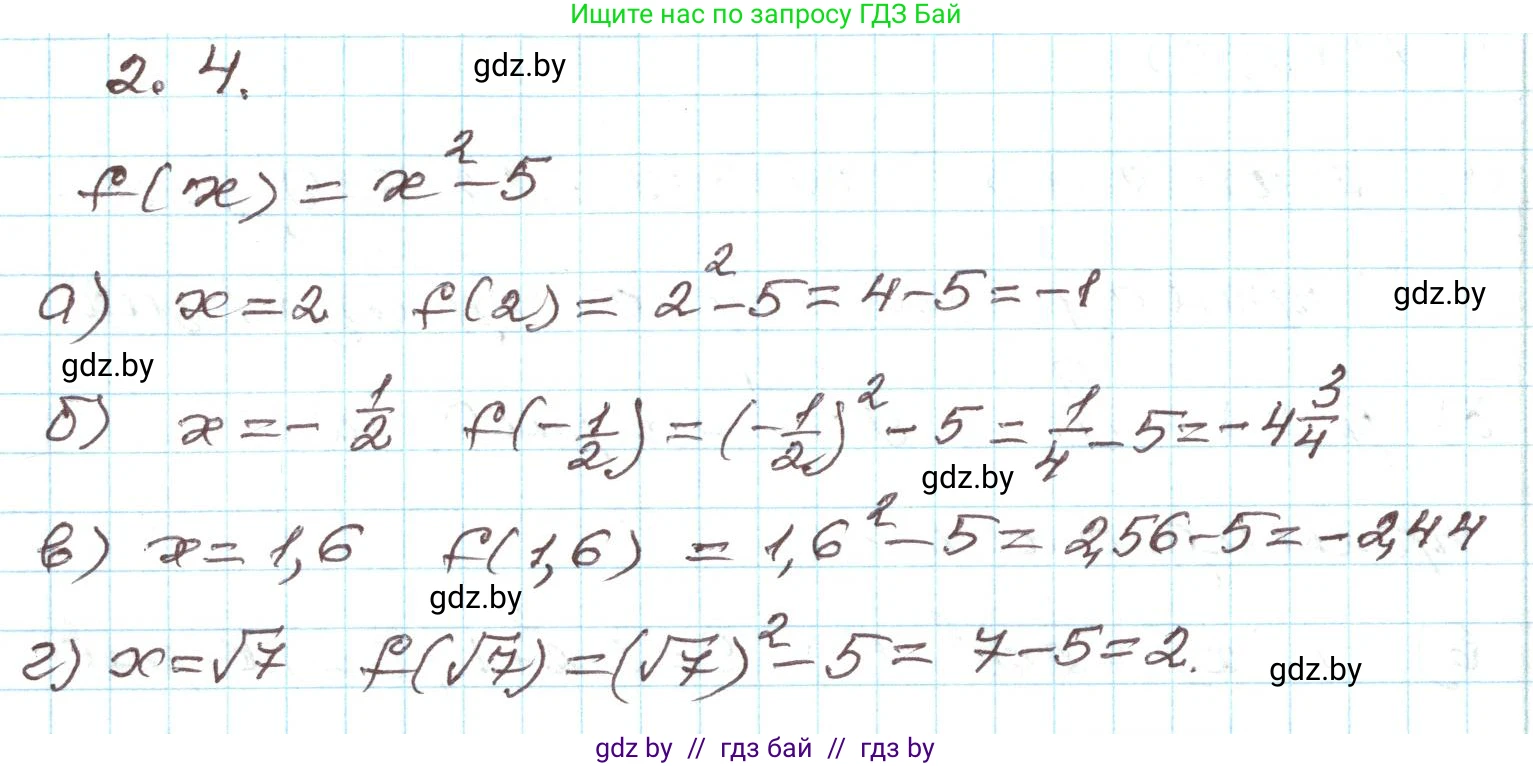 Ищите нас по запросу ГДЗ Бай
2. 4. gdz.by
f(x) = x² - 5
а) x = 2 f(2) = 2² - 5 = 4 - 5 = -1 gdz.by
gdz.by
б) x = - 1/2 f(- 1/2) = (- 1/2)² - 5 = 1/4 - 5 = -4 3/4
gdz.by
в) x = 1,6 f(1,6) = 1,6² - 5 = 2,56 - 5 = -2,44
gdz.by
г) x = √7 f(√7) = (√7)² - 5 = 7 - 5 = 2. gdz.by
gdz by // гдз бай // гдз by